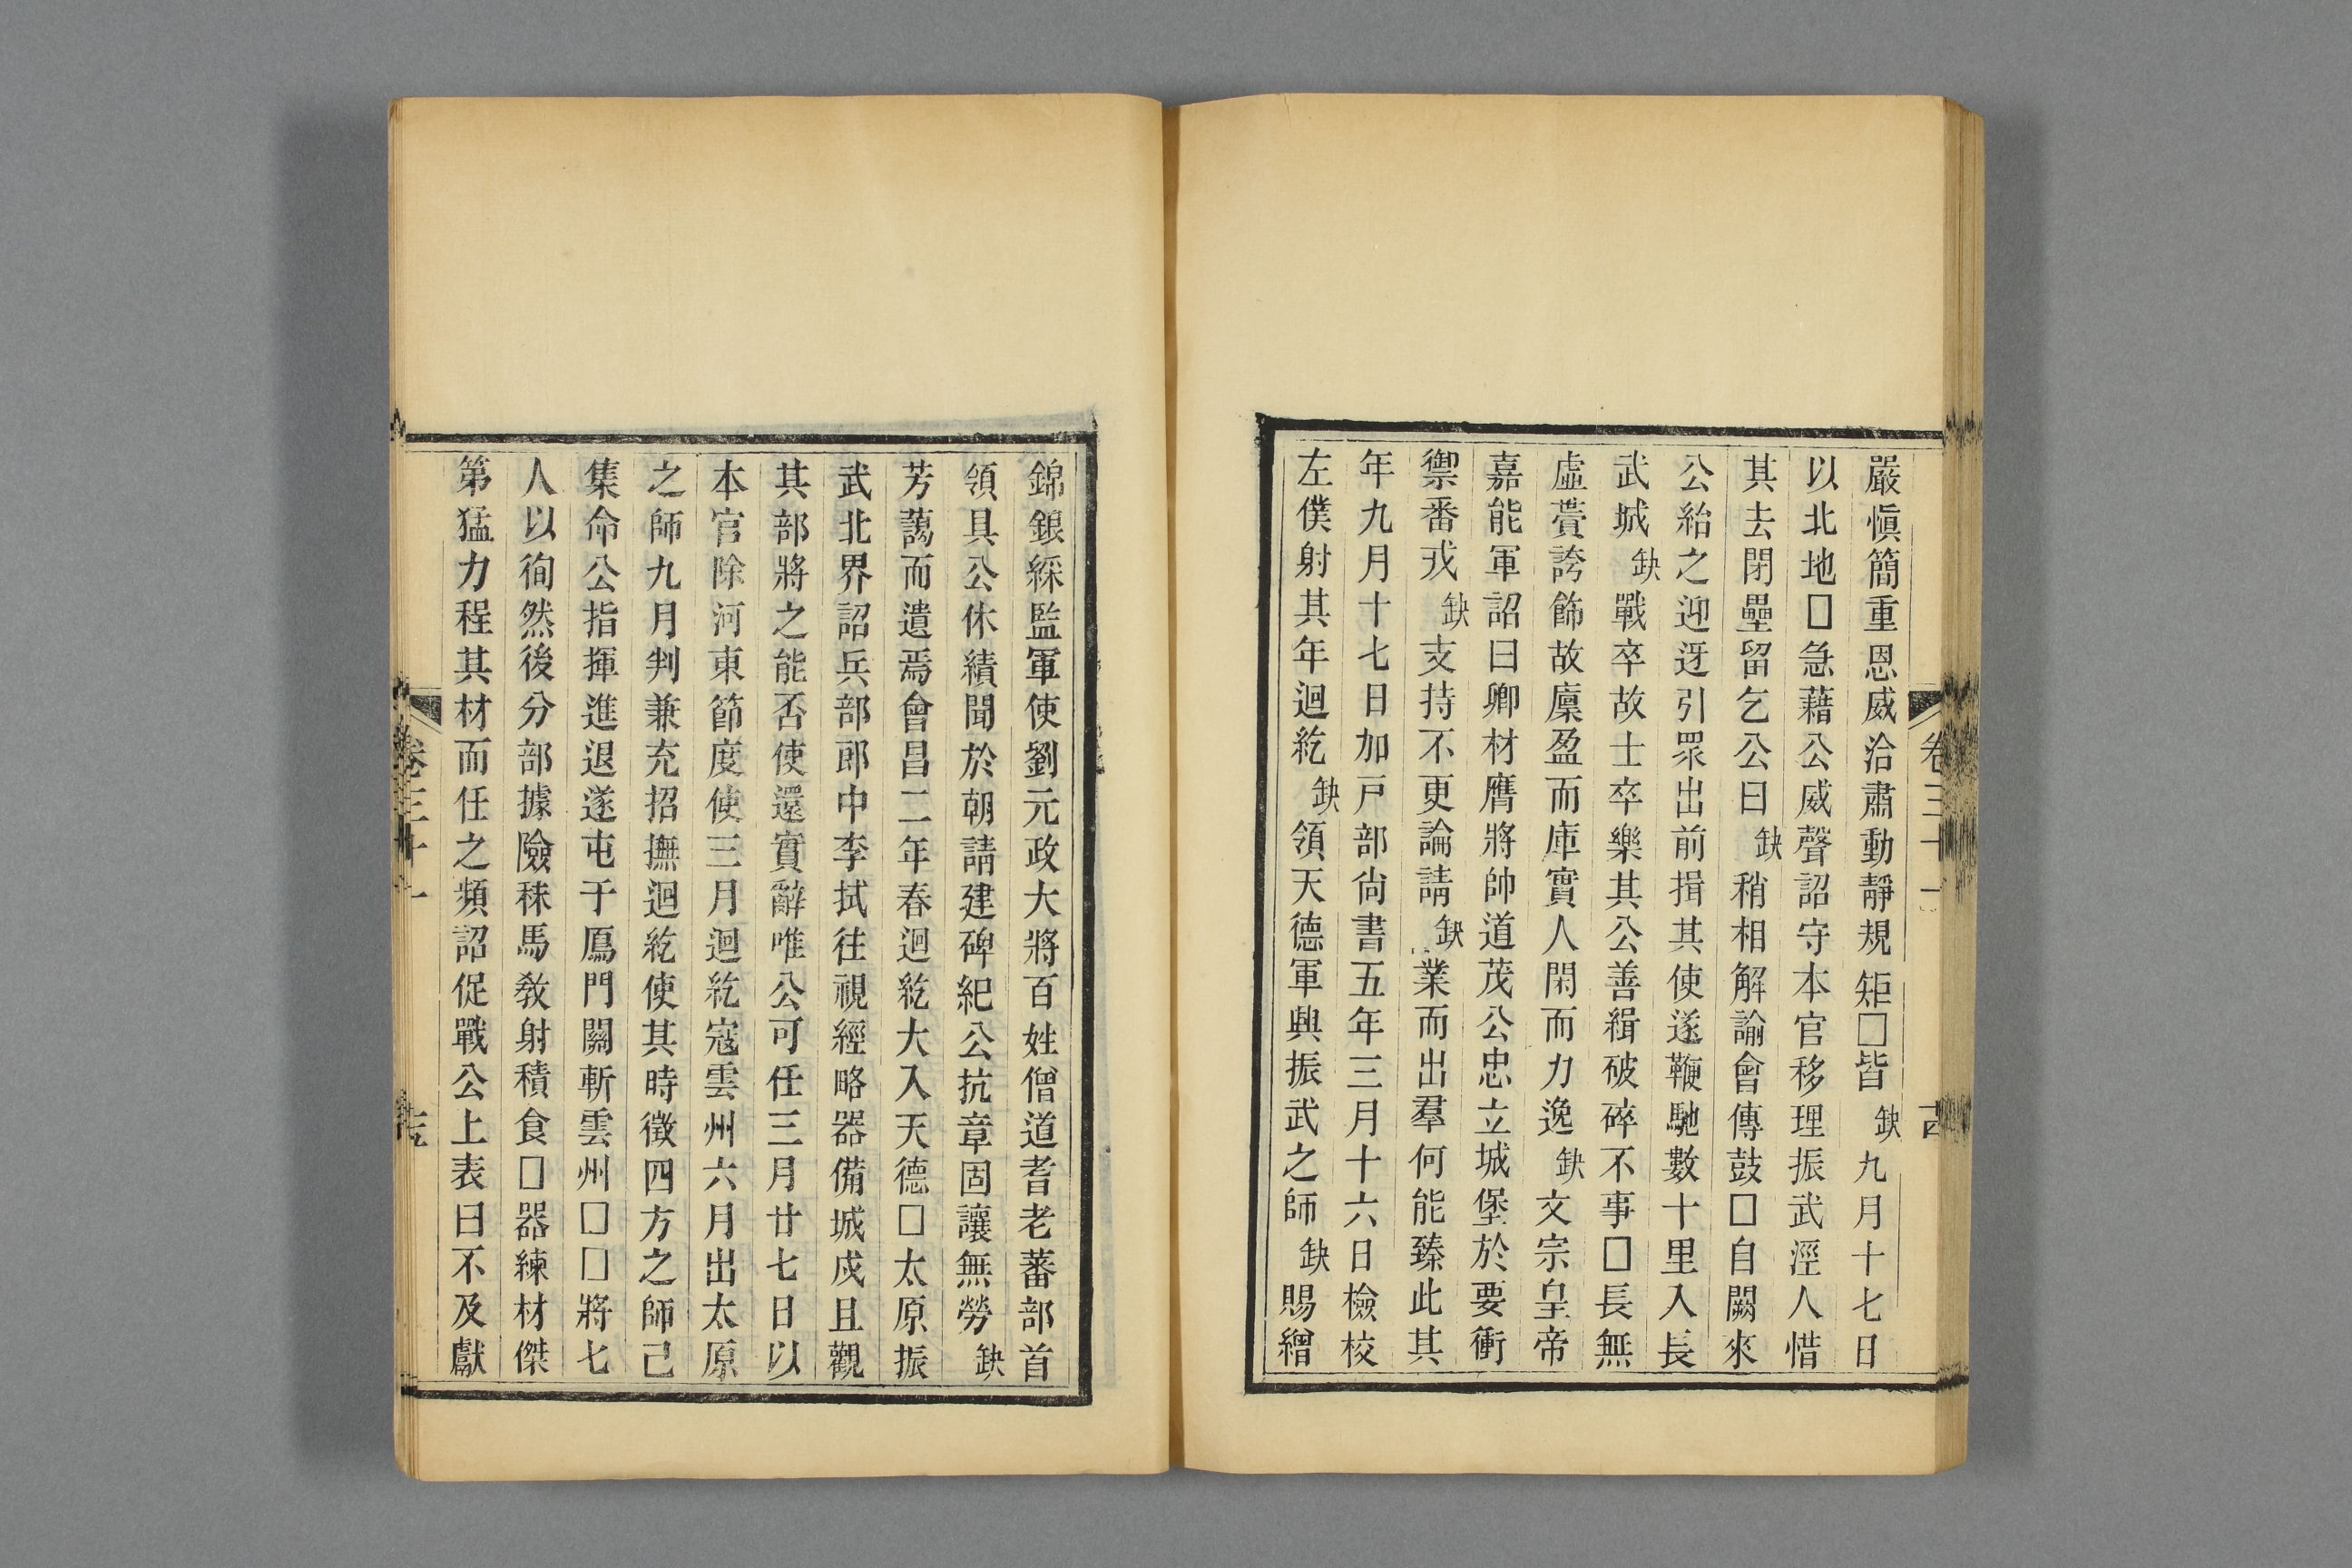 嚴愼簡重恩威洽肅動靜規矩□皆缺九月十七日
以北地□急藉公威聲詔守本官移理振武涇人惜
其去閉壘留乞公曰缺稍相解諭會傳鼓□自闕來
公紿之迎迓引眾出前揖其使遂鞭馳數十里入長
武城缺戰卒故士卒樂其公善緝破碎不事□長無
虛蕡誇飾故廩盈而庫實人閑而力逸缺文宗皇帝
嘉能軍詔曰卿材膺將帥道茂公忠立城堡於要衝
禦番戎缺支持不更論請缺業而出羣何能臻此其
年九月十七日加戸部尙書五年三月十六日檢校
左僕射其年迴紇缺領天德軍與振武之師缺賜繒
卷三十一
古
錦銀綵監軍使劉元政大將百姓僧道耆老蕃部首
領具公休績聞於朝請建碑紀公抗章固讓無勞缺
芳藹而遣焉會昌二年春迴紇大入天德□太原振
武北界詔兵部郎中李拭往視經略器備城戍且觀
其部將之能否使還實辭唯公可任三月廿七日以
本官除河東節度使三月迴紇寇雲州六月出太原
之師九月判兼充招撫迴紇使其時徵四方之師己
集命公指揮進退遂屯于鴈門關斬雲州□□將七
人以徇然後分部據險秣馬敎射積食□器練材傑
第猛力程其材而任之頻詔促戰公上表曰不及獻
卷三十一